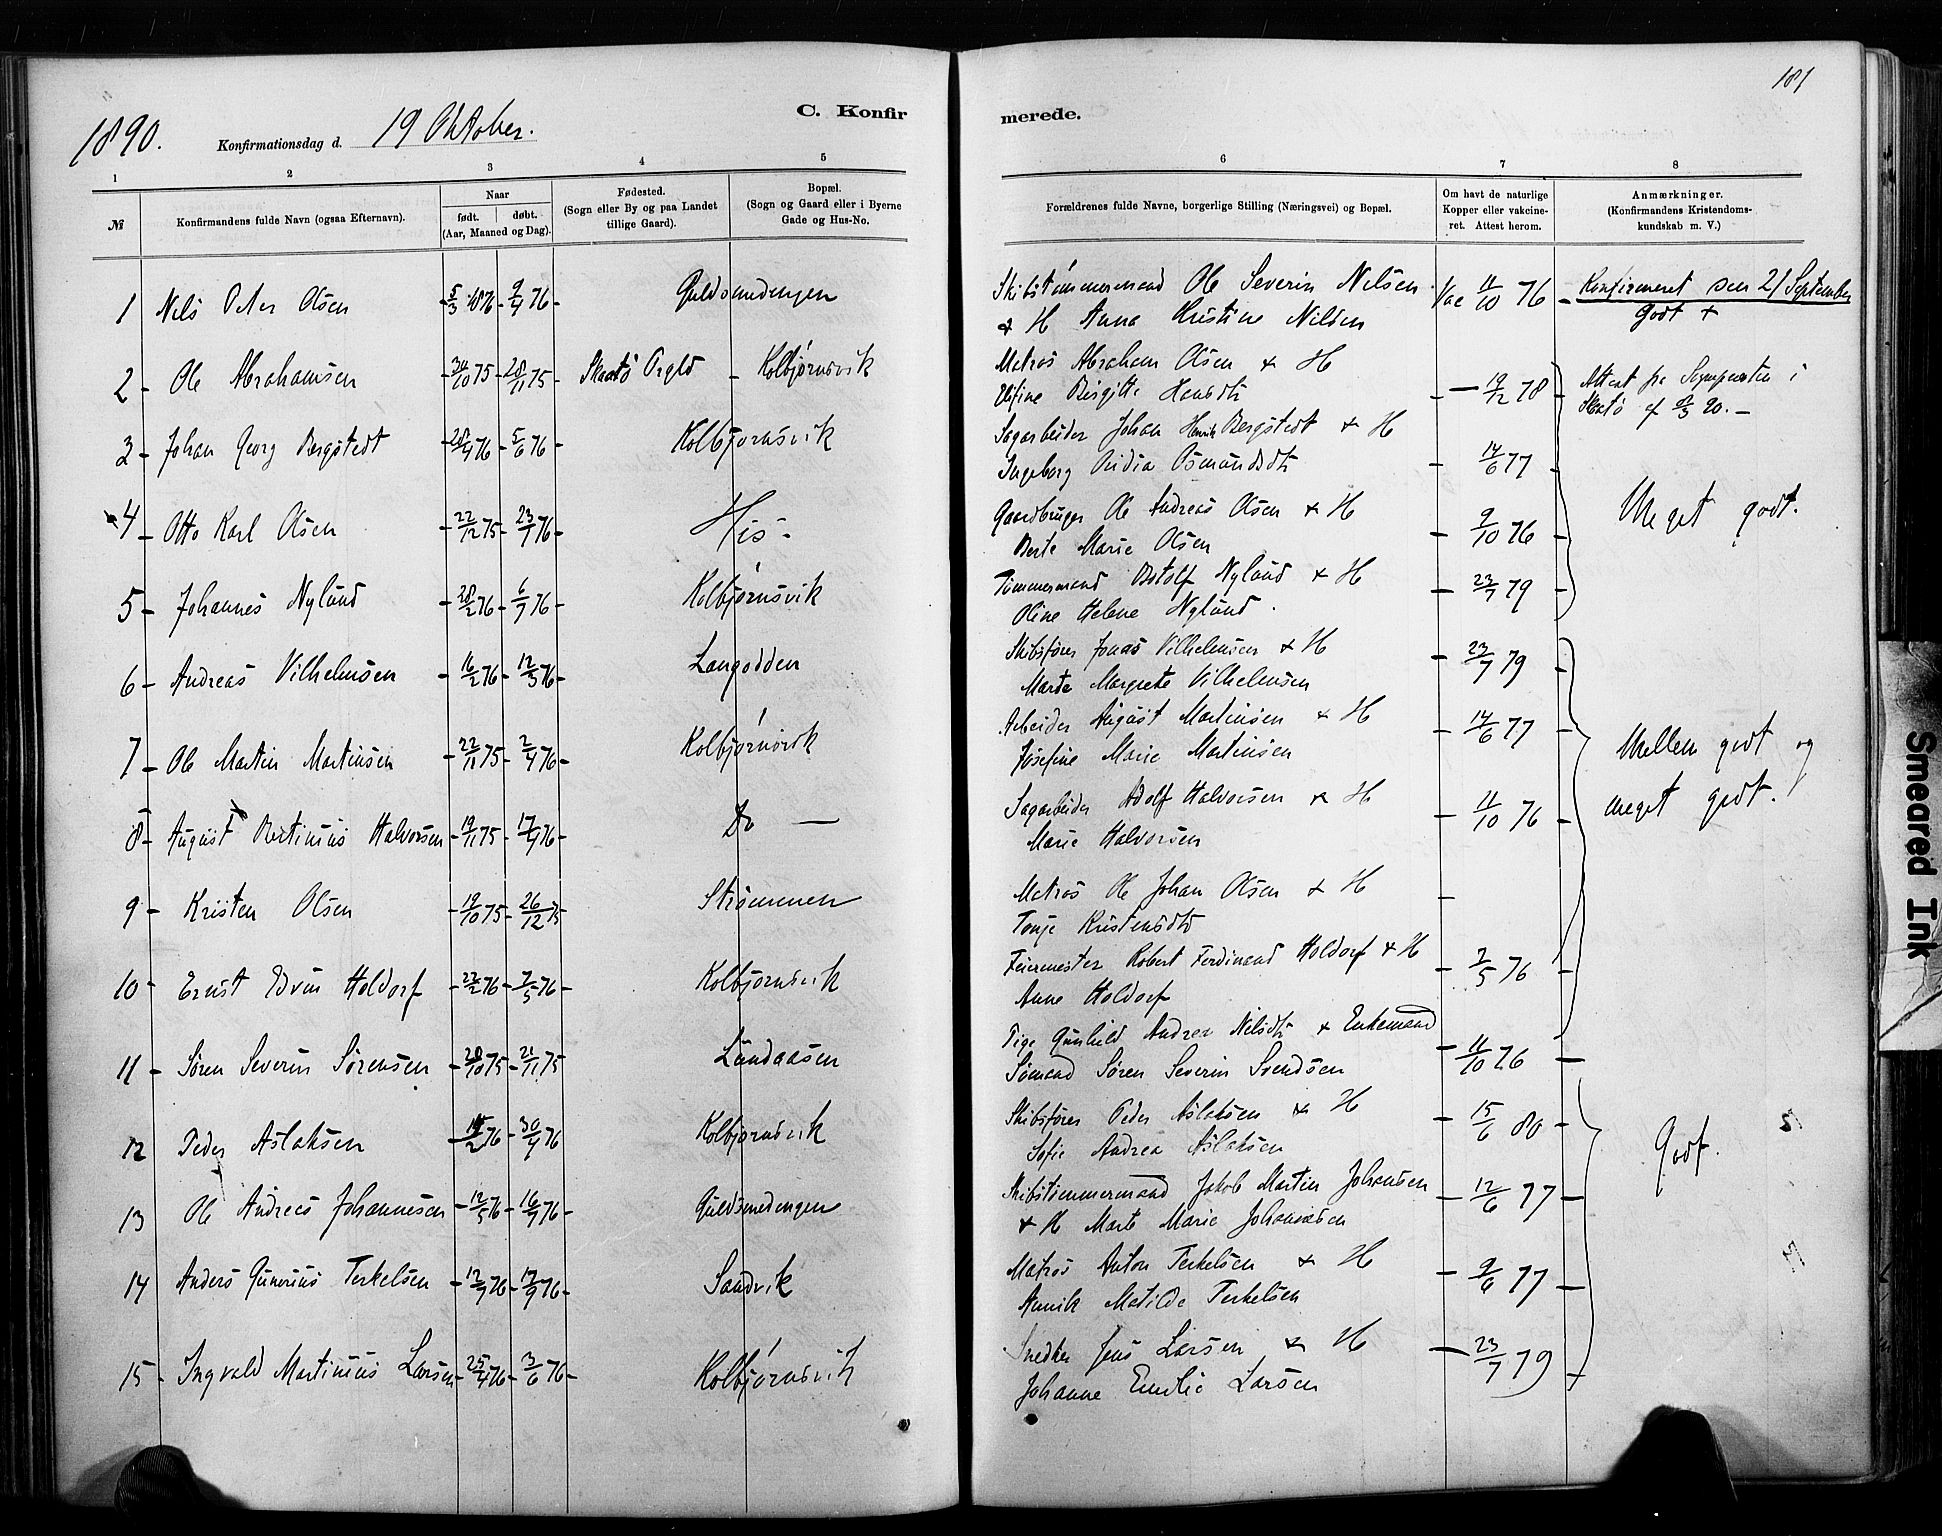 181
1890. Konfirmationsdag d. 19 Oktober. C. Konfirmerede.
1 2 3 4 5 6 7 8
№ Konfirmandens fulde Navn (ogsaa Efternavn). Naar født. døbt. (Aar, Maaned og Dag). Fødested. (Sogn eller By og paa Landet tillige Gaard). Bopæl. (Sogn og Gaard eller i Byerne Gade og Hus-No. Forældrenes fulde Navne, borgerlige Stilling (Næringsvei) og Bopæl. Om havt de naturlige Kopper eller vakcineret. Attest herom. Anmærkninger. (Konfirmandens Kristendomskundskab m. V.)
1 Nils Peter Olsen 5/3 1876 9/4 76 Guldsmedengen Skibstømmermand Ole Severin Nilsen Vac 11/10 76 Konfirmeret den 21 September
& H Anna Kristine Nilsen godt +
2 Ole Abrahamsen 30/10 75 28/11 75 Skaatø Prgld Kolbjørnsvik Matros Abraham Olsen & H 19/12 78 Attest fra Sognepresten i
Birgitte Skaatø af 20.
3 Johan Georg Bergstedt 28/4 76 5/6 76 Kolbjørnsvik Sagarbeider Johan Henrik Bergstedt & H
Ingeborg Osmundsdtr 14/6 77
4 Otto Karl Olsen 22/12 75 23/1 76 His. Gaardbruger Ole Andreas Olsen & H 9/10 76 Meget godt.
Berte Marie Olsen
5 Johannes Nylund 28/2 76 6/7 76 Kolbjørnsvik Tømmermand Botolf Nylund & H 23/7 79
Oline Helene Nylund.
6 Andreas Vilhelmsen 16/2 76 12/3 76 Langodden Skibsfører Jonas Vilhelmsen & H 23/7 79
Marte Margrete Vilhelmsen
7 Ole Martin Martinsen 22/11 75 2/4 76 Kolbjørnsvik Arbeider August Martinsen & H 14/6 77 Mellem godt og
Josefine Marie Martinsen
8 August Bertinius Halvorsen 19/11 75 17/4 76 Do — Sagarbeider Adolf Halvorsen & H 11/10 76 meget godt.
Marie Halvorsen
9 Kristen Olsen 19/10 75 26/12 75 Strømmen Matros Ole Johan Olsen & H
Tonje Kristensdtr
10 Ernst Edvin Holdorf 22/2 76 7/5 76 Kolbjørnsvik Feiermester Robert Ferdinand Holdorf & H 2/5 76
Anne Holdorf
11 Søren Severin Sørensen 28/10 75 21/11 75 Lundaasen Pige Gunhild Andrea Nilsdtr & Enkemand
Sømand Søren Severin Svendsen 11/10 76
12 Peder Aslaksen 15/2 76 30/4 76 Kolbjørnsvik Skibsfører Peder Aslaksen & H 15/6 80 Godt.
Sofie Andrea Aslaksen
13 Ole Andreas Johannesen 12/5 76 16/7 76 Guldsmedengen Skibstømmermand Jakob Martin Johansen 12/6 77
& H Marte Marie Johannesen
14 Anders Gunerius Terkelsen 12/7 76 17/9 76 Sandvik Matros Anton Terkelsen & H 9/6 77
Annik Matilde Terkelsen
15 Ingvald Martinius Larsen 25/4 76 3/6 76 Kolbjørnsvik Snedker Jens Larsen & H 23/7 79
Johanne Emilie Larsen
Smeared Ink